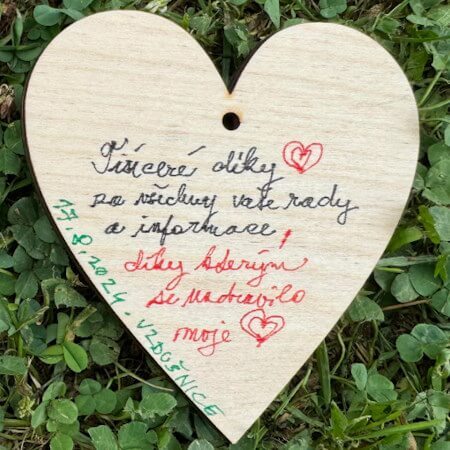 Tisíceré díky
za všechny vaše rady
a informace,
díky kterým
se uzdravilo
moje
17.8.2024 - VZDUŠNICE